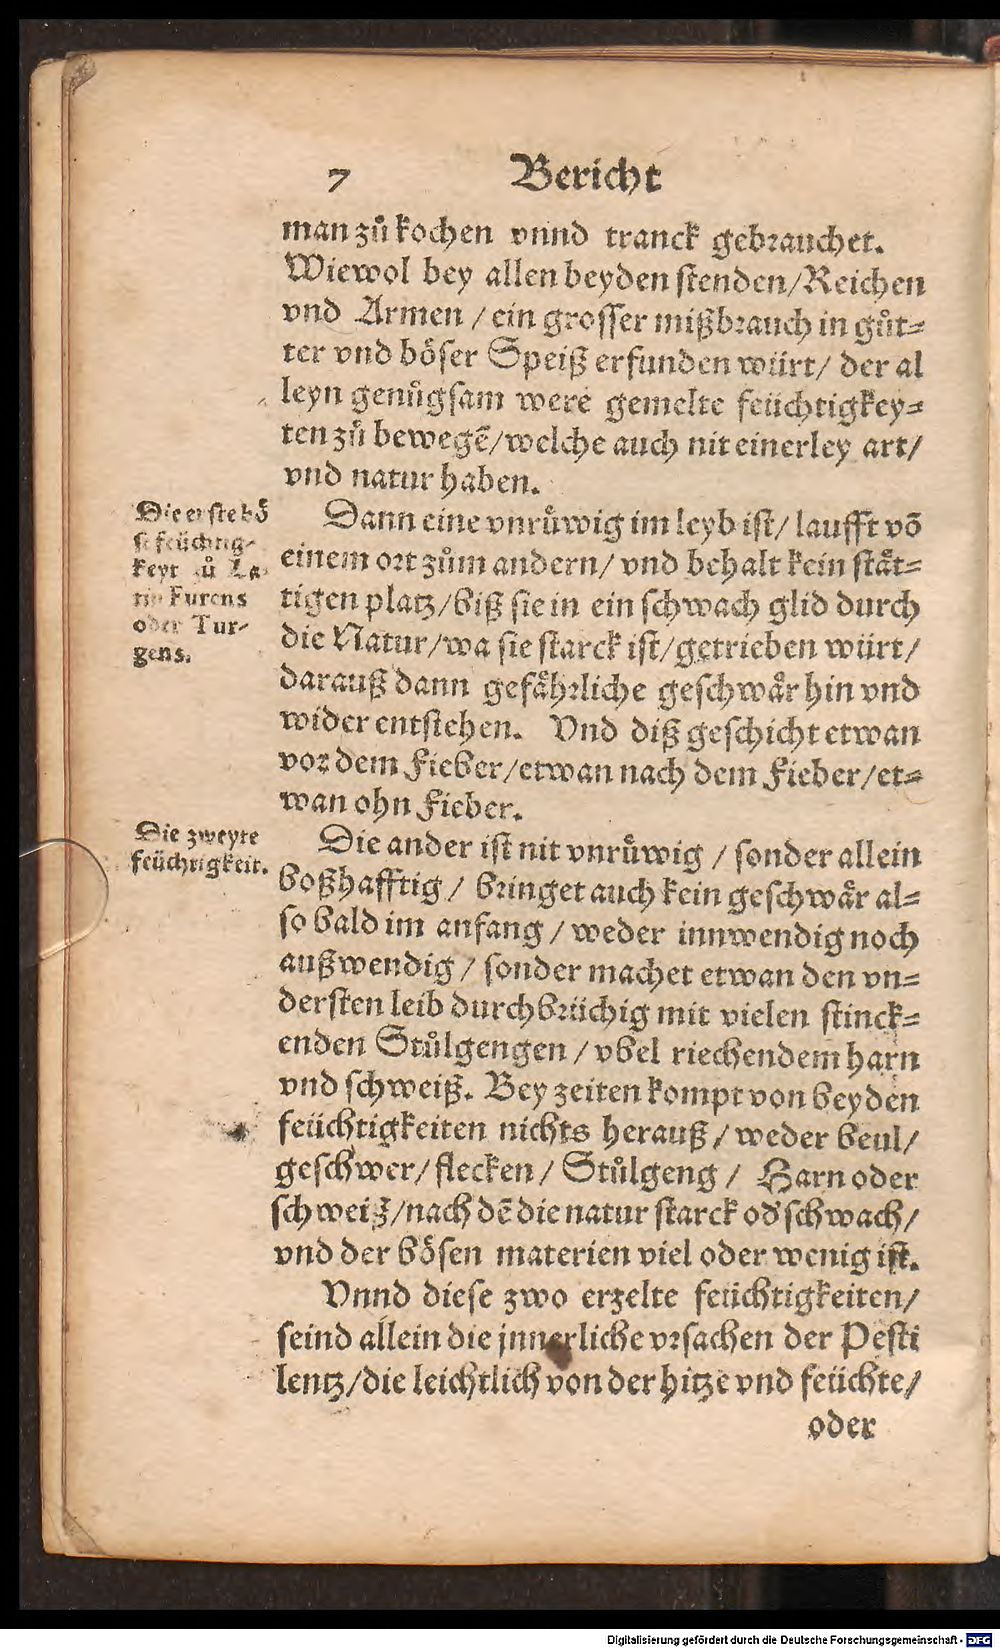 7 Bericht
man zů kochen vnnd tranck gebrauchet.
Wiewol bey allen beyden stenden/Reichen
vnd Armen / ein grosser mißbrauch in gůt=
ter vnd böser Speiß erfunden würt/ der al
leyn genůgsam were gemelte feüchtigkey=
ten zů bewegē/welche auch nit einerley art/
vnd natur haben.
Die erste bö
se feüchtig=
keyt zů La=
tin Furens
oder Tur=
gens.
Dann eine vnrůwig im leyb ist/ laufft vō
einem ort zům andern/ vnd behalt kein stät=
tigen platz/biß sie in ein schwach glid durch
die Natur/wa sie starck ist/getrieben würt/
darauß dann gefährliche geschwär hin vnd
wider entstehen. Vnd diß geschicht etwan
vor dem Fieber/etwan nach dem Fieber/et=
wan ohn Fieber.
Die zweyte
feüchtigkeit.
Die ander ist nit vnrůwig / sonder allein
boßhafftig / bringet auch kein geschwär al=
so bald im anfang / weder innwendig noch
außwendig / sonder machet etwan den vn=
dersten leib durchbrüchig mit vielen stinck=
enden Stůlgengen / vbel riechendem harn
vnd schweiß. Bey zeiten kompt von beyden
feüchtigkeiten nichts herauß / weder beul/
geschwer/ flecken / Stůlgeng / Harn oder
schweiß/nach dē die natur starck od' schwach/
vnd der bösen materien viel oder wenig ist.
Vnnd diese zwo erzelte feüchtigkeiten/
seind allein die jnnerliche vrsachen der Pesti
lentz/die leichtlich von der hitze vnd feüchte/
oder
Digitalisierung gefördert durch die Deutsche Forschungsgemeinschaft - DFG